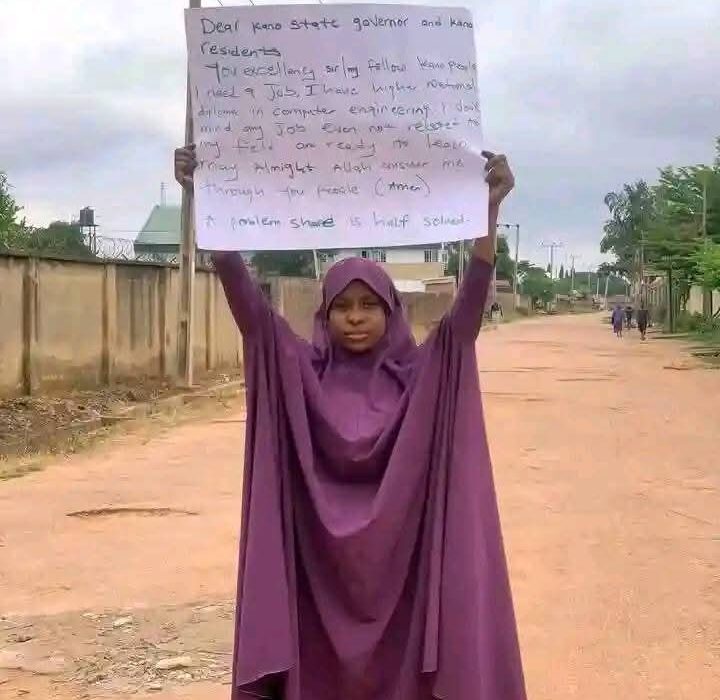 Dear Kano state governor and Kano
residents
You excellency sir/my follow kano people
I need a Job, I have higher National
diploma in computer engineering I dont
mind any Job Even not related to
my field am ready to learn
may Almight Allah answer me
through you people (Amen)
A problem share is half solved.